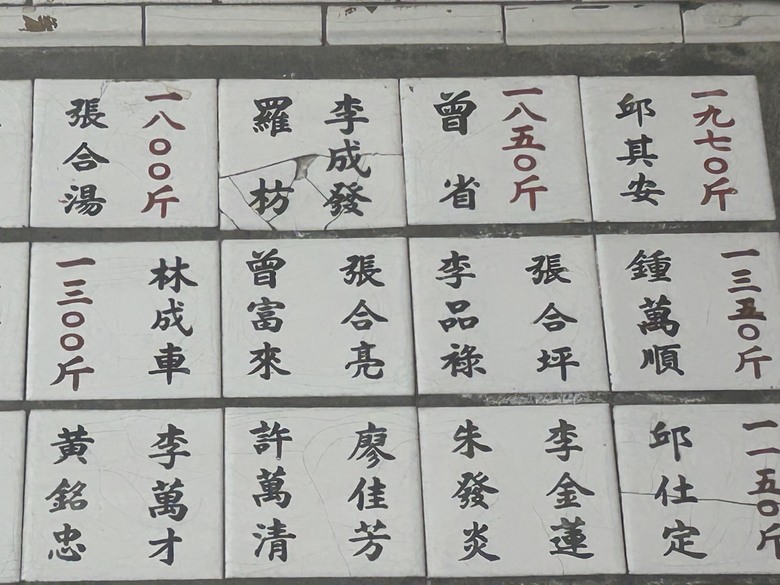 一九七〇斤
邱其安
一八五〇斤
曾省
李成發
羅枋
一八〇〇斤
張合湯
一三五〇斤
鍾萬順
張合坪
李品祿
張合亮
曾富來
林成車
一三〇〇斤
一一五〇斤
邱仕定
李金蓮
朱發炎
廖佳芳
許萬清
李萬才
黃銘忠